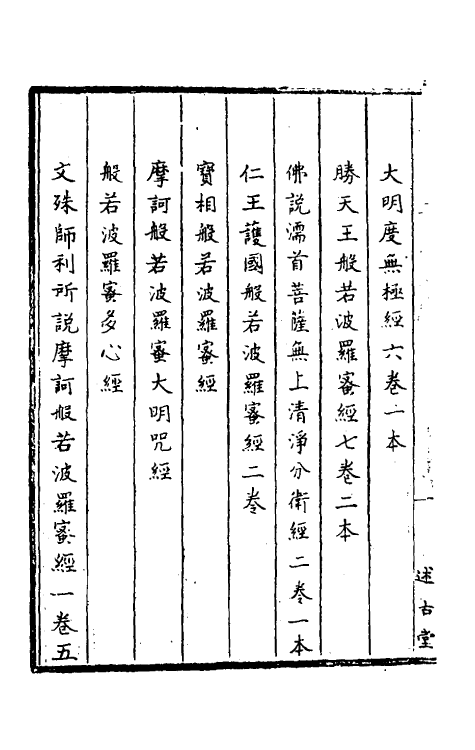 大明度無極經六卷一本
勝天王般若波羅蜜經七卷二本
佛說濡首菩薩無上清淨分衛經二卷一本
仁王護國般若波羅蜜經二卷
寶相般若波羅蜜經
摩訶般若波羅蜜大明咒經
般若波羅蜜多心經
文殊師利所說摩訶般若波羅蜜經一卷五
述古堂